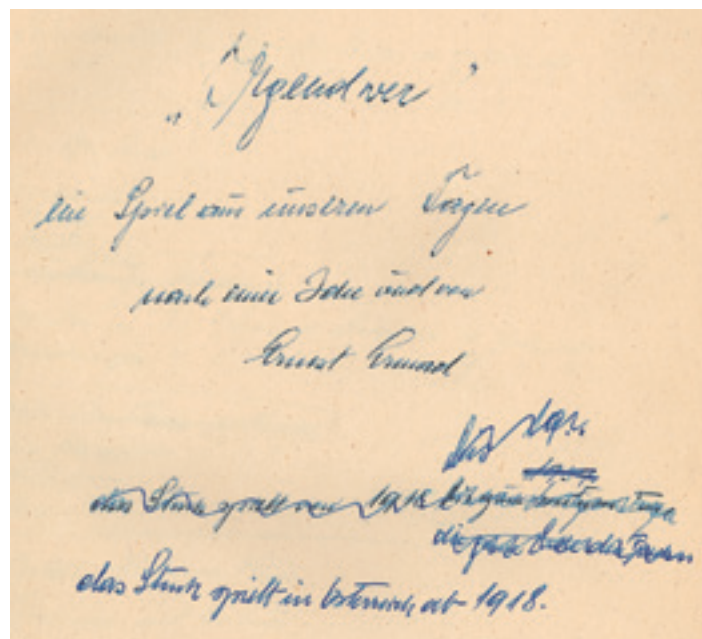 „Irgendwer"
ein Spiel aus unseren Tagen
nach einer Idee und von
Ernest
bis
das Stück spielt von 1918 bis zum heutigen Tage
das Stück spielt in Österreich ab 1918.